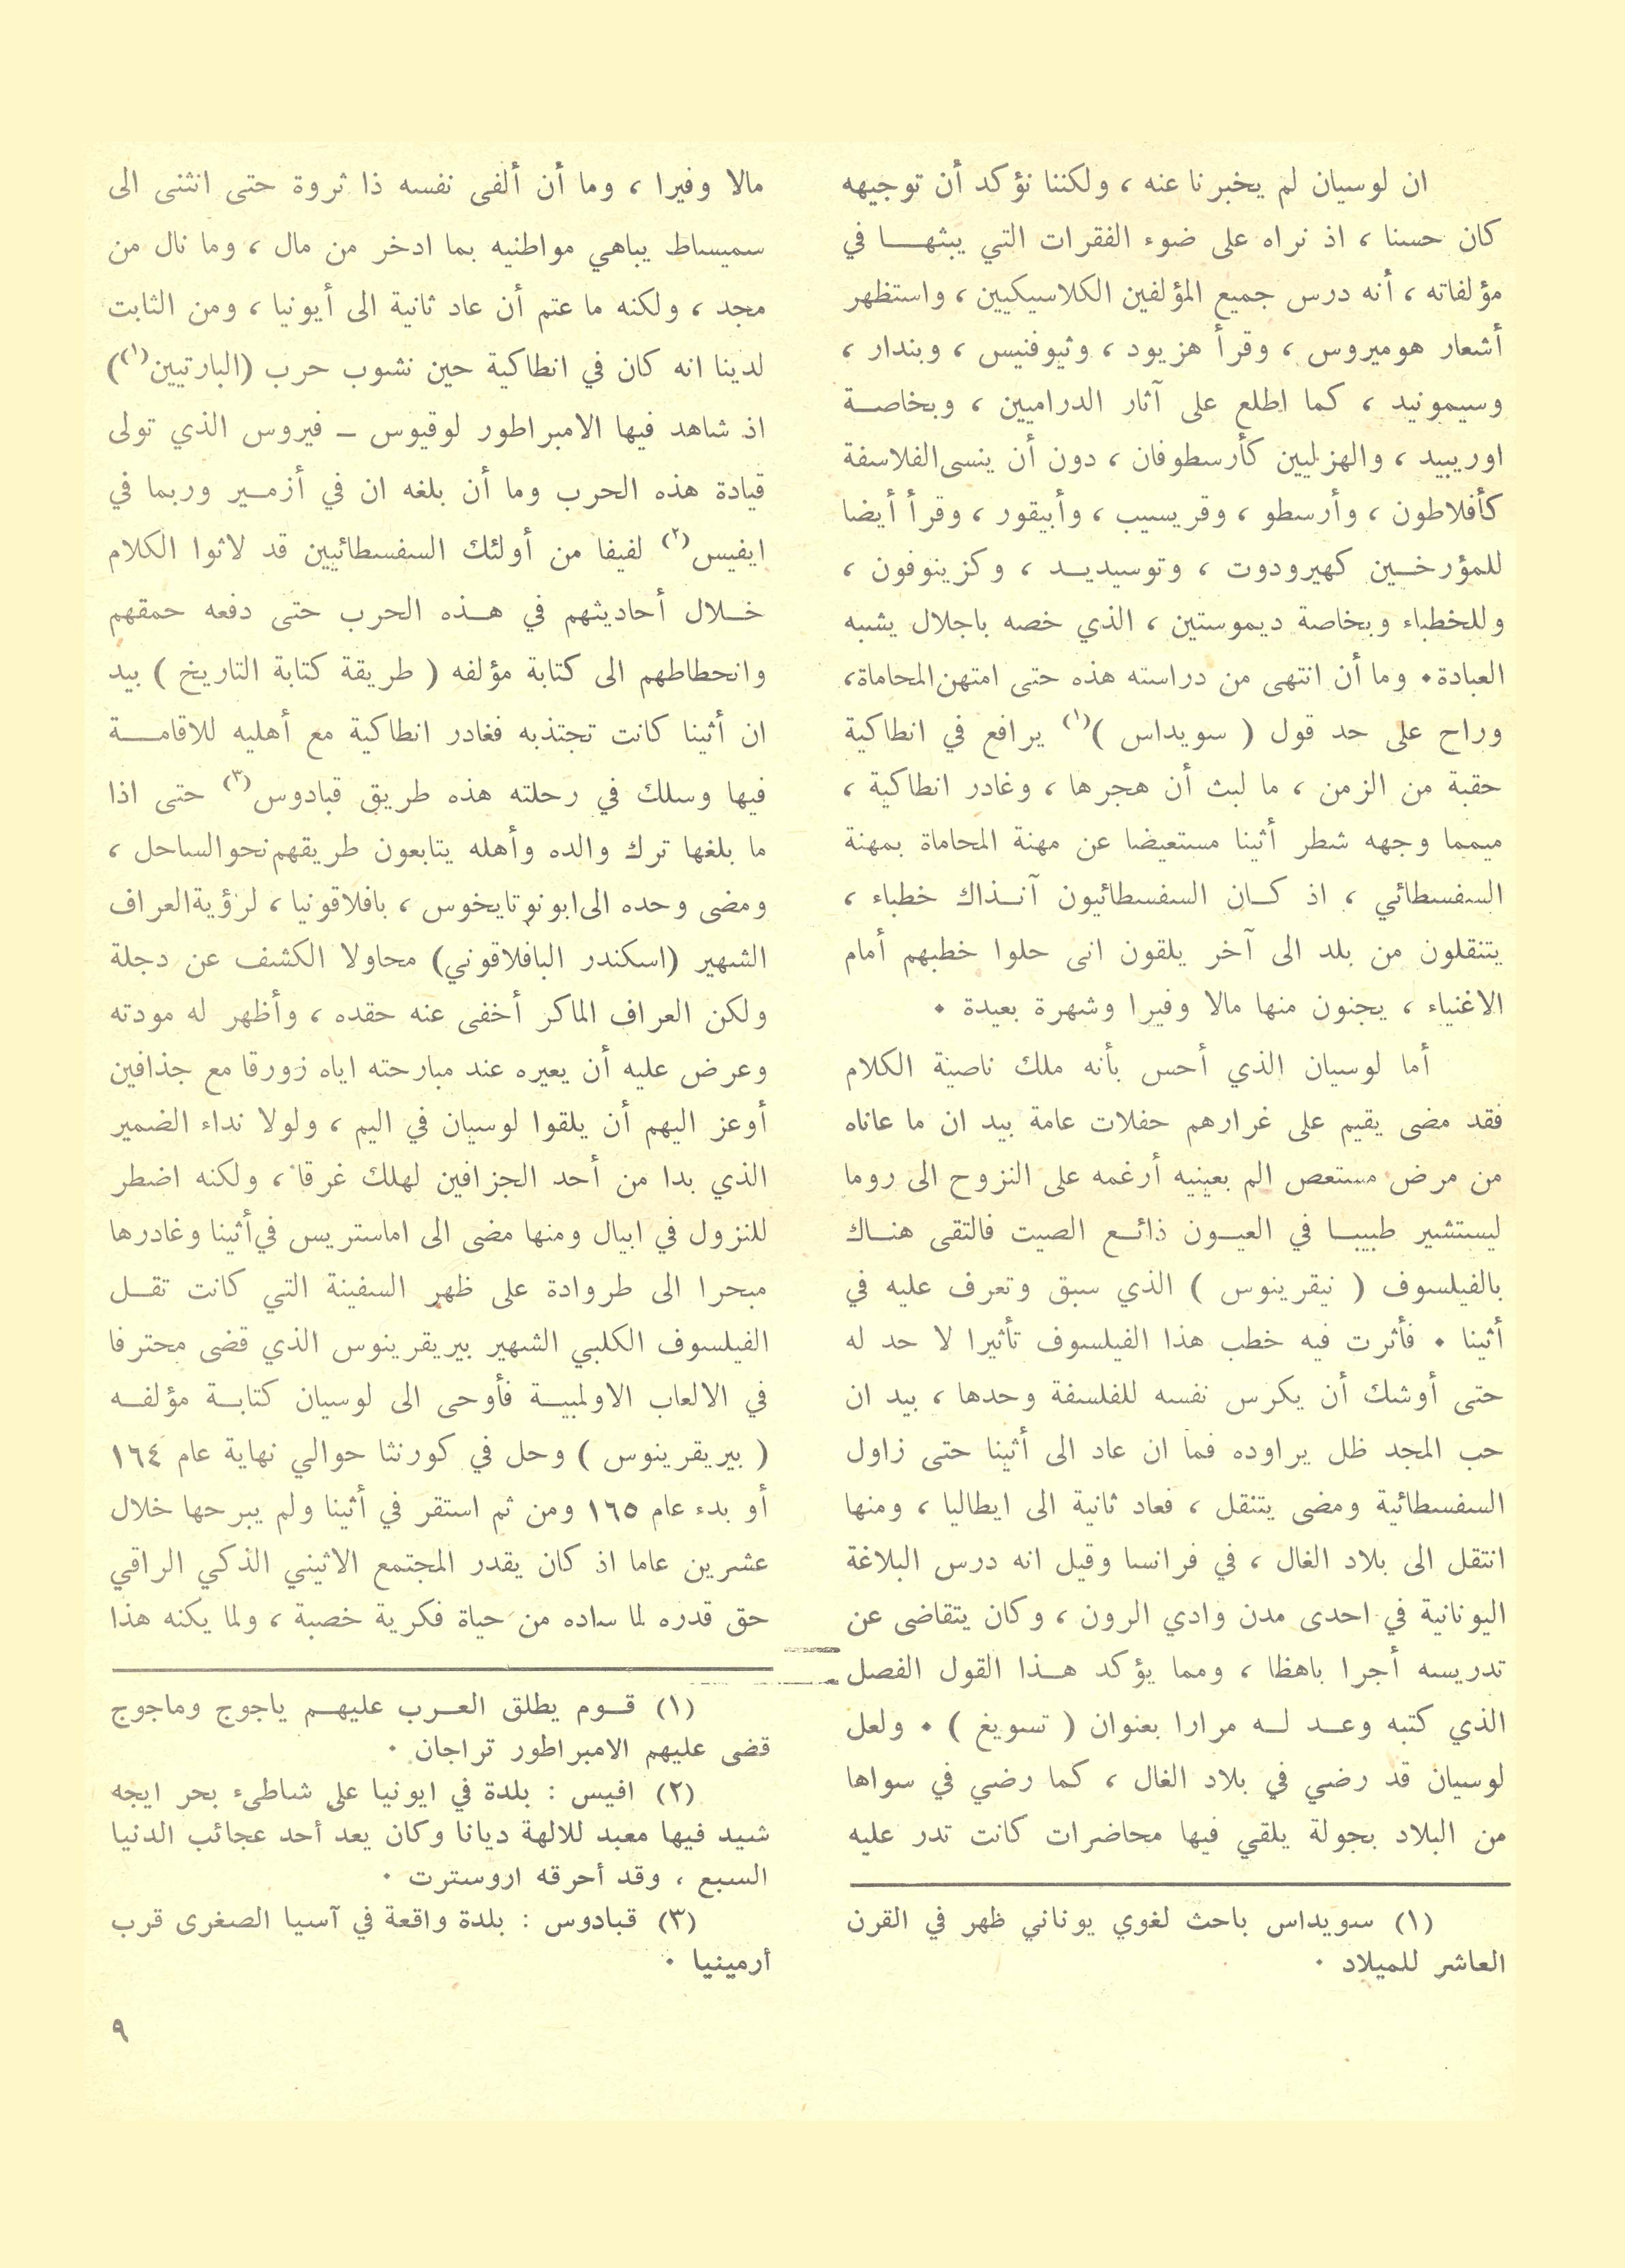 ان لوسيان لم يخبرنا عنه ، ولكننا نؤكد أن توجيهه
كان حسنا ، اذ نراه على ضوء الفقرات التي يبثهــا في
مؤلفاته ، أنه درس جميع المؤلفين الكلاسيكيين ، واستظهر
أشعار هوميروس ، وقرأ هزيود ، وثيوفنيس ، وبندار ،
وسيمونيد ، كما اطلع على آثار الدراميين ، وبخاصــة
اوريبيد ، والهزليين كأرسطوفان ، دون أن ينسى الفلاسفة
كأفلاطون ، وأرسطو ، وقريسيب ، وأبيقور ، وقرأ أيضا
للمؤرخــين كهيرودوت ، وتوسيديــد ، وكزينوفون ،
وللخطباء وبخاصة ديموستين ، الذي خصه باجلال يشبه
العبادة . وما أن انتهى من دراسته هذه حتى امتهن المحاماة ،
وراح على حد قول ( سويداس )(١) يرافع في انطاكية
حقبة من الزمن ، ما لبث أن هجرها ، وغادر انطاكية ،
ميمما وجهه شطر أثينا مستعيضا عن مهنة المحاماة بمهنة
السفسطائي ، اذ كــان السفسطائيون آنــذاك خطباء ،
يتنقلون من بلد الى آخر يلقون انى حلوا خطبهم أمام
الاغنياء ، يجنون منها مالا وفيرا وشهرة بعيدة .
أما لوسيان الذي أحس بأنه ملك ناصية الكلام
فقد مضى يقيم على غرارهم حفلات عامة بيد ان ما عاناه
من مرض مستعص الم بعينيه أرغمه على النزوح الى روما
ليستشير طبيبــا في العيــون ذائــع الصيت فالتقى هنــاك
بالفيلسوف ( نيقرينوس ) الذي سبق وتعرف عليه في
أثينا . فأثرت فيه خطب هذا الفيلسوف تأثيرا لا حد له
حتى أوشك أن يكرس نفسه للفلسفة وحدها ، بيد ان
حب المجد ظل يراوده فما ان عاد الى أثينا حتى زاول
السفسطائية ومضى يتنقل ، فعاد ثانية الى ايطاليا ، ومنها
انتقل الى بلاد الغال ، في فرانسا وقيل انه درس البلاغة
اليونانية في احدى مدن وادي الرون ، وكان يتقاضى عن
تدريسه أجرا باهظا ، ومما يؤكد هــذا القول الفصل
الذي كتبه وعــد لــه مرارا بعنوان ( تسويغ ) . ولعل
لوسيان قد رضي في بلاد الغال ، كما رضي في سواها
من البلاد بجولة يلقي فيها محاضرات كانت تدر عليه
(١) سويداس باحث لغوي يوناني ظهر في القرن
العاشر للميلاد .
مالا وفيرا ، وما أن ألفى نفسه ذا ثروة حتى انثنى الى
سميساط يباهي مواطنيه بما ادخر من مال ، وما نال من
مجد ، ولكنه ما عتم أن عاد ثانية الى أيونيا ، ومن الثابت
لدينا انه كان في انطاكية حين نشوب حرب (البارتيين(١))
اذ شاهد فيها الامبراطور لوقيوس – فيروس الذي تولى
قيادة هذه الحرب وما أن بلغه ان في أزمــير وربما في
ايفيس(٢) لفيفا من أولئك السفسطائيين قد لاثوا الكلام
خــلال أحاديثهم في هــذه الحرب حتى دفعه حمقهم
وانحطاطهم الى كتابة مؤلفه ( طريقة كتابة التاريخ ) بيد
ان أثينا كانت تجتذبه فغادر انطاكية مع أهليه للاقامــة
فيها وسلك في رحلته هذه طريق قبادوس(٣) حتى اذا
ما بلغها ترك والده وأهله يتابعون طريقهم نحو الساحل ،
ومضى وحده الى ابونوتايخوس ، بافلاقونيا ، لرؤية العراف
الشهير (اسكندر البافلاقوني) محاولا الكشف عن دجلة
ولكن العراف الماكر أخفى عنه حقده ، وأظهر له مودته
وعرض عليه أن يعيره عند مبارحته اياه زورقا مع جذافين
أوعز اليهم أن يلقوا لوسيان في اليم ، ولولا نداء الضمير
الذي بدا من أحد الجزافين لهلك غرقا ، ولكنه اضطر
للنزول في ابيال ومنها مضى الى اماستريس في أثينا وغادرها
مبحرا الى طروادة على ظهر السفينة التي كانت تقــل
الفيلسوف الكلبي الشهير بيريقرينوس الذي قضى محترقا
في الالعاب الاولمبيــة فأوحى الى لوسيان كتابــة مؤلفــه
( بيريقرينوس ) وحل في كورنثا حوالي نهاية عام ١٦٤
أو بدء عام ١٦٥ ومن ثم استقر في أثينا ولم يبرحها خلال
عشرين عاما اذ كان يقدر المجتمع الاثيني الذكي الراقي
حق قدره لما ساده من حياة فكرية خصبة ، ولما يكنه هذا
(١) قــوم يطلق العــرب عليهــم ياجوج وماجوج
قضى عليهم الامبراطور تراجان .
(٢) افيس : بلدة في ايونيا على شاطىء بحر ايجه
شييد فيها معبد للالهة ديانا وكان يعد أحد عجائب الدنيا
السبع ، وقد أحرقه اروسترت .
(٣) قبادوس : بلدة واقعة في آسيا الصغرى قرب
أرمينيا .
٩